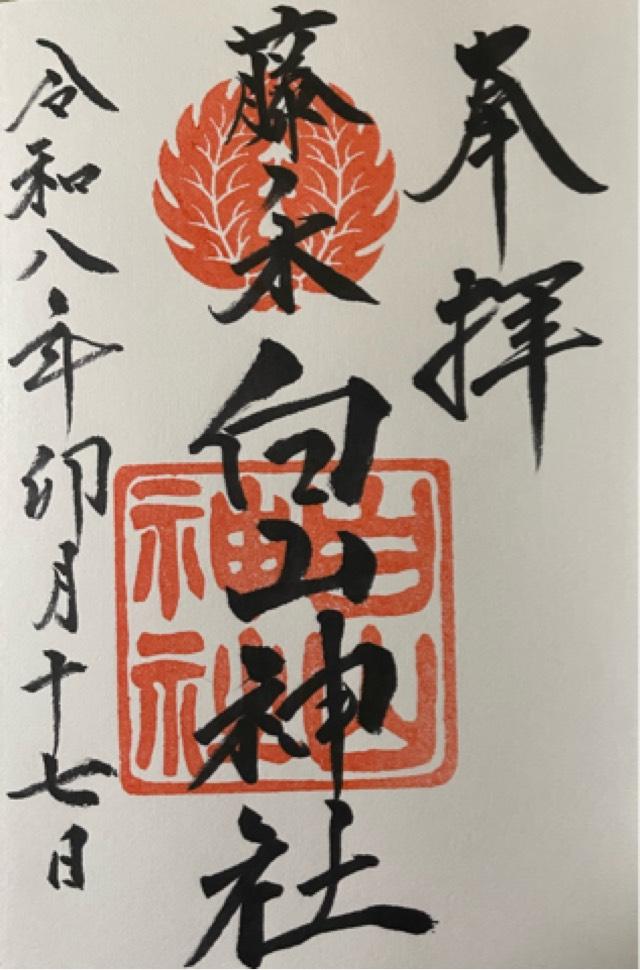 奉拝
藤ノ木白山神社
白山
神社
令和八年卯月十七日